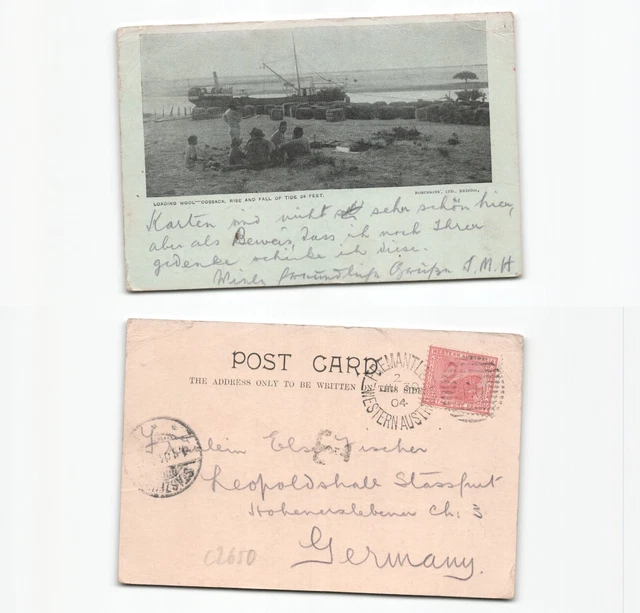 LOADING WOOL—COSSACK, RISE AND FALL OF TIDE 24 FEET.
ROBINSONS', LTD., BRISTOL,
Karten sind nicht sehr schön hier,
aber als Beweis, dass ich noch Ihrer
gedenke schicke ich diese.
Viele freundliche Grüße
POST CARD
THE ADDRESS ONLY TO BE WRITTEN ON THIS SIDE
FREMANTLE
2
30
04
WESTERN AUSTR
Fräulein Else Fischer
Leopoldshall Stassfurt
Hohenerxlebener Ch: 3
Germany.
C2650